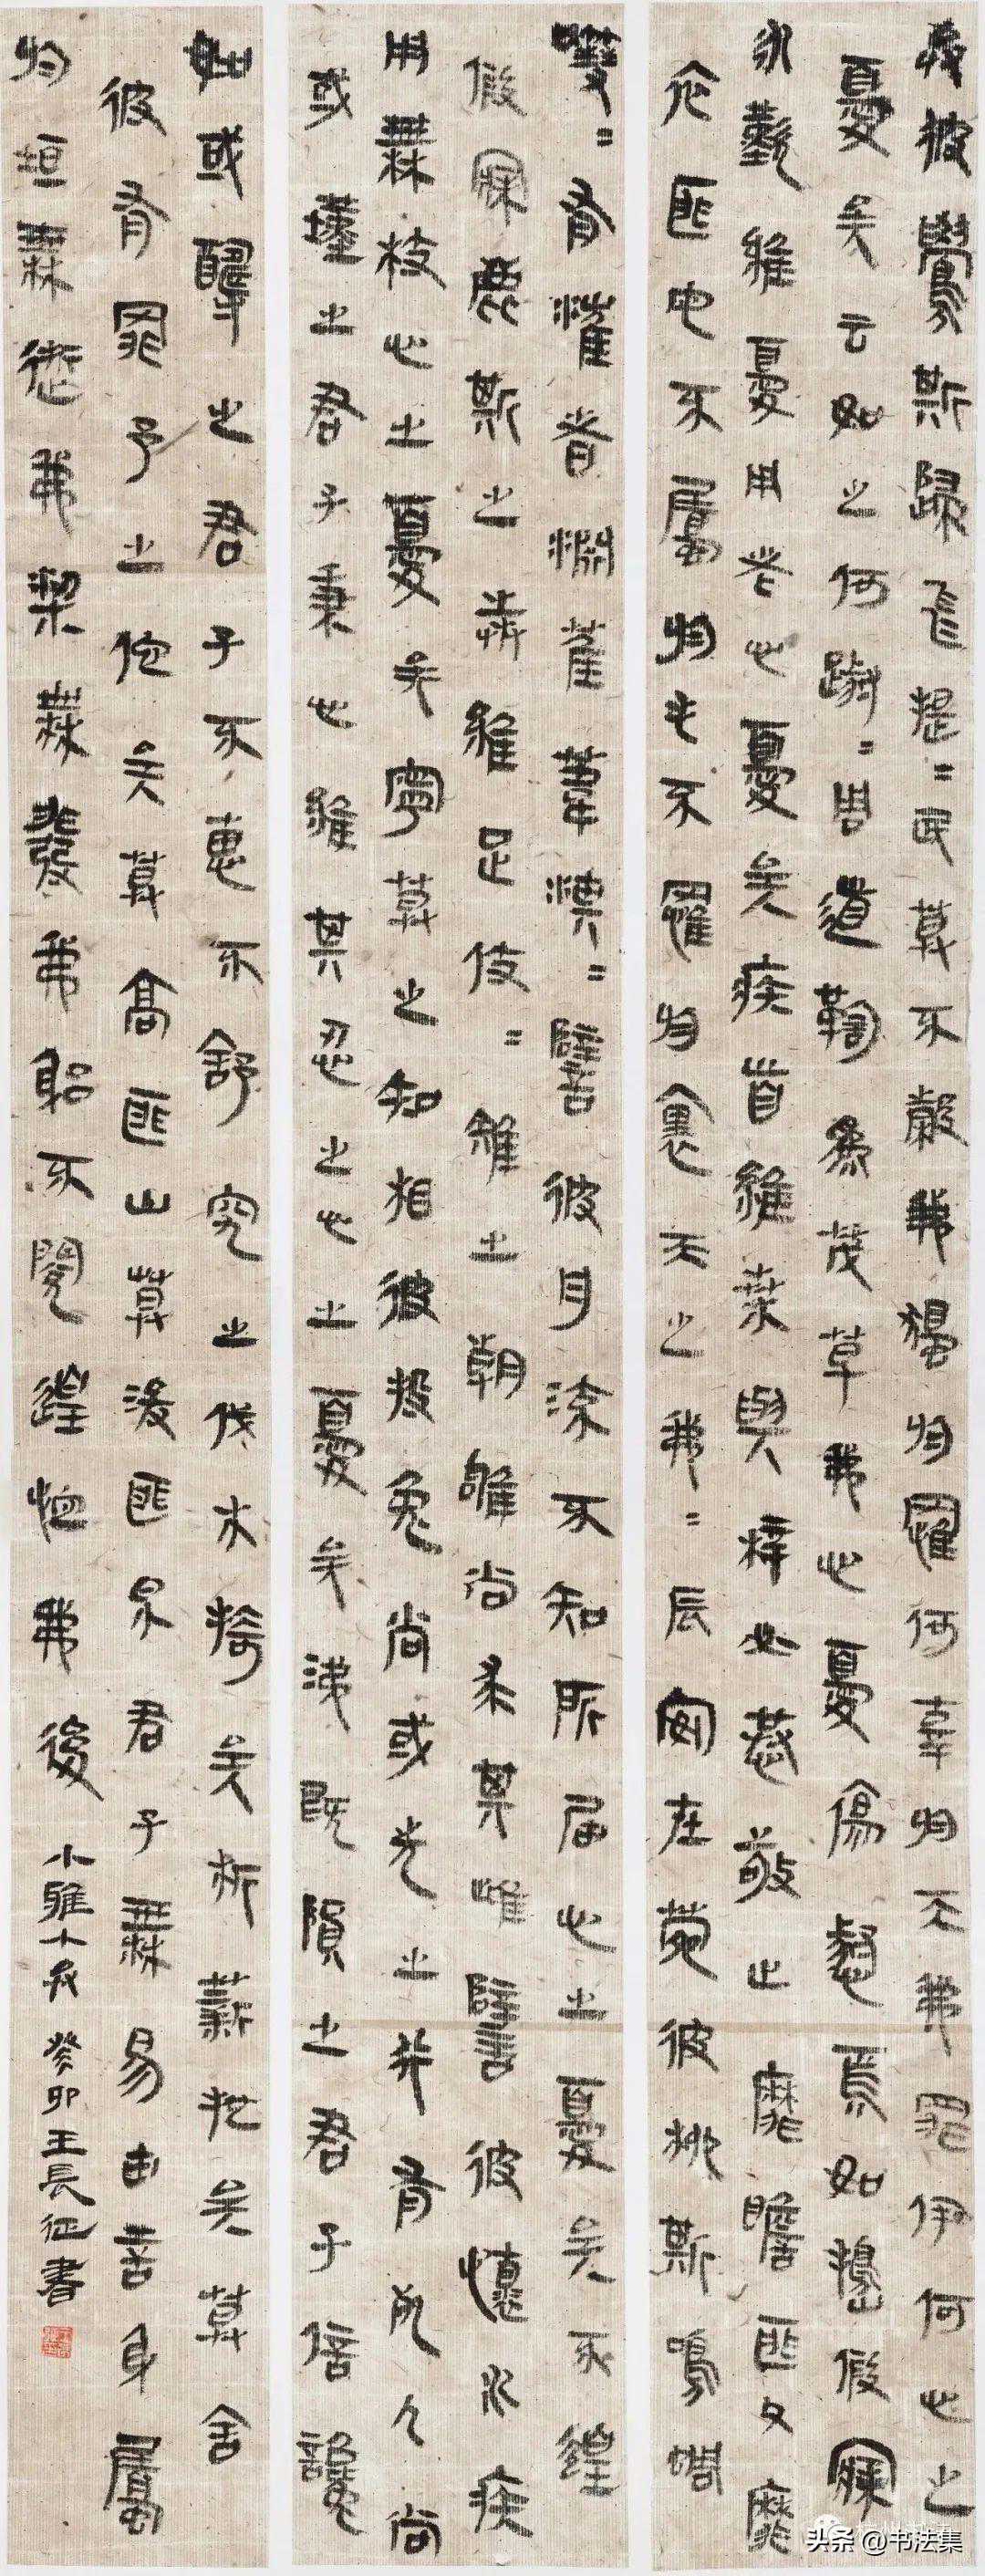 弁彼鸒斯歸飛提=民莫不穀我獨于罹何辜于天我罪伊何心之
憂矣云如之何踧=周道鞫為茂草我心憂傷惄焉如擣假寐
永歎維憂用老心憂矣疾首維桑與梓必恭敬止靡瞻匪父靡
依匪母不屬于毛不罹于裏天之我=辰安在菀彼柳斯鳴蜩
嘒=有漼者淵萑葦淠=譬彼舟流不知所屆心之憂矣不遑
假寐鹿斯之奔維足伎=雉之朝雊尚求其雌譬彼壞木疾
用無枝心之憂矣寧莫之知相彼投兔尚或先之行有死人尚
或墐之君子秉心維其忍之心之憂矣涕既隕之君子信讒
如或醻之君子不惠不舒究之伐木掎矣析薪扡矣莫舍
彼有罪予之佗矣莫高匪山莫浚匪泉君子無易由言耳屬
于垣無逝我梁無發我笱我躬不閱遑恤我後 小雅小弁 癸卯王長征書
头条 @书法集